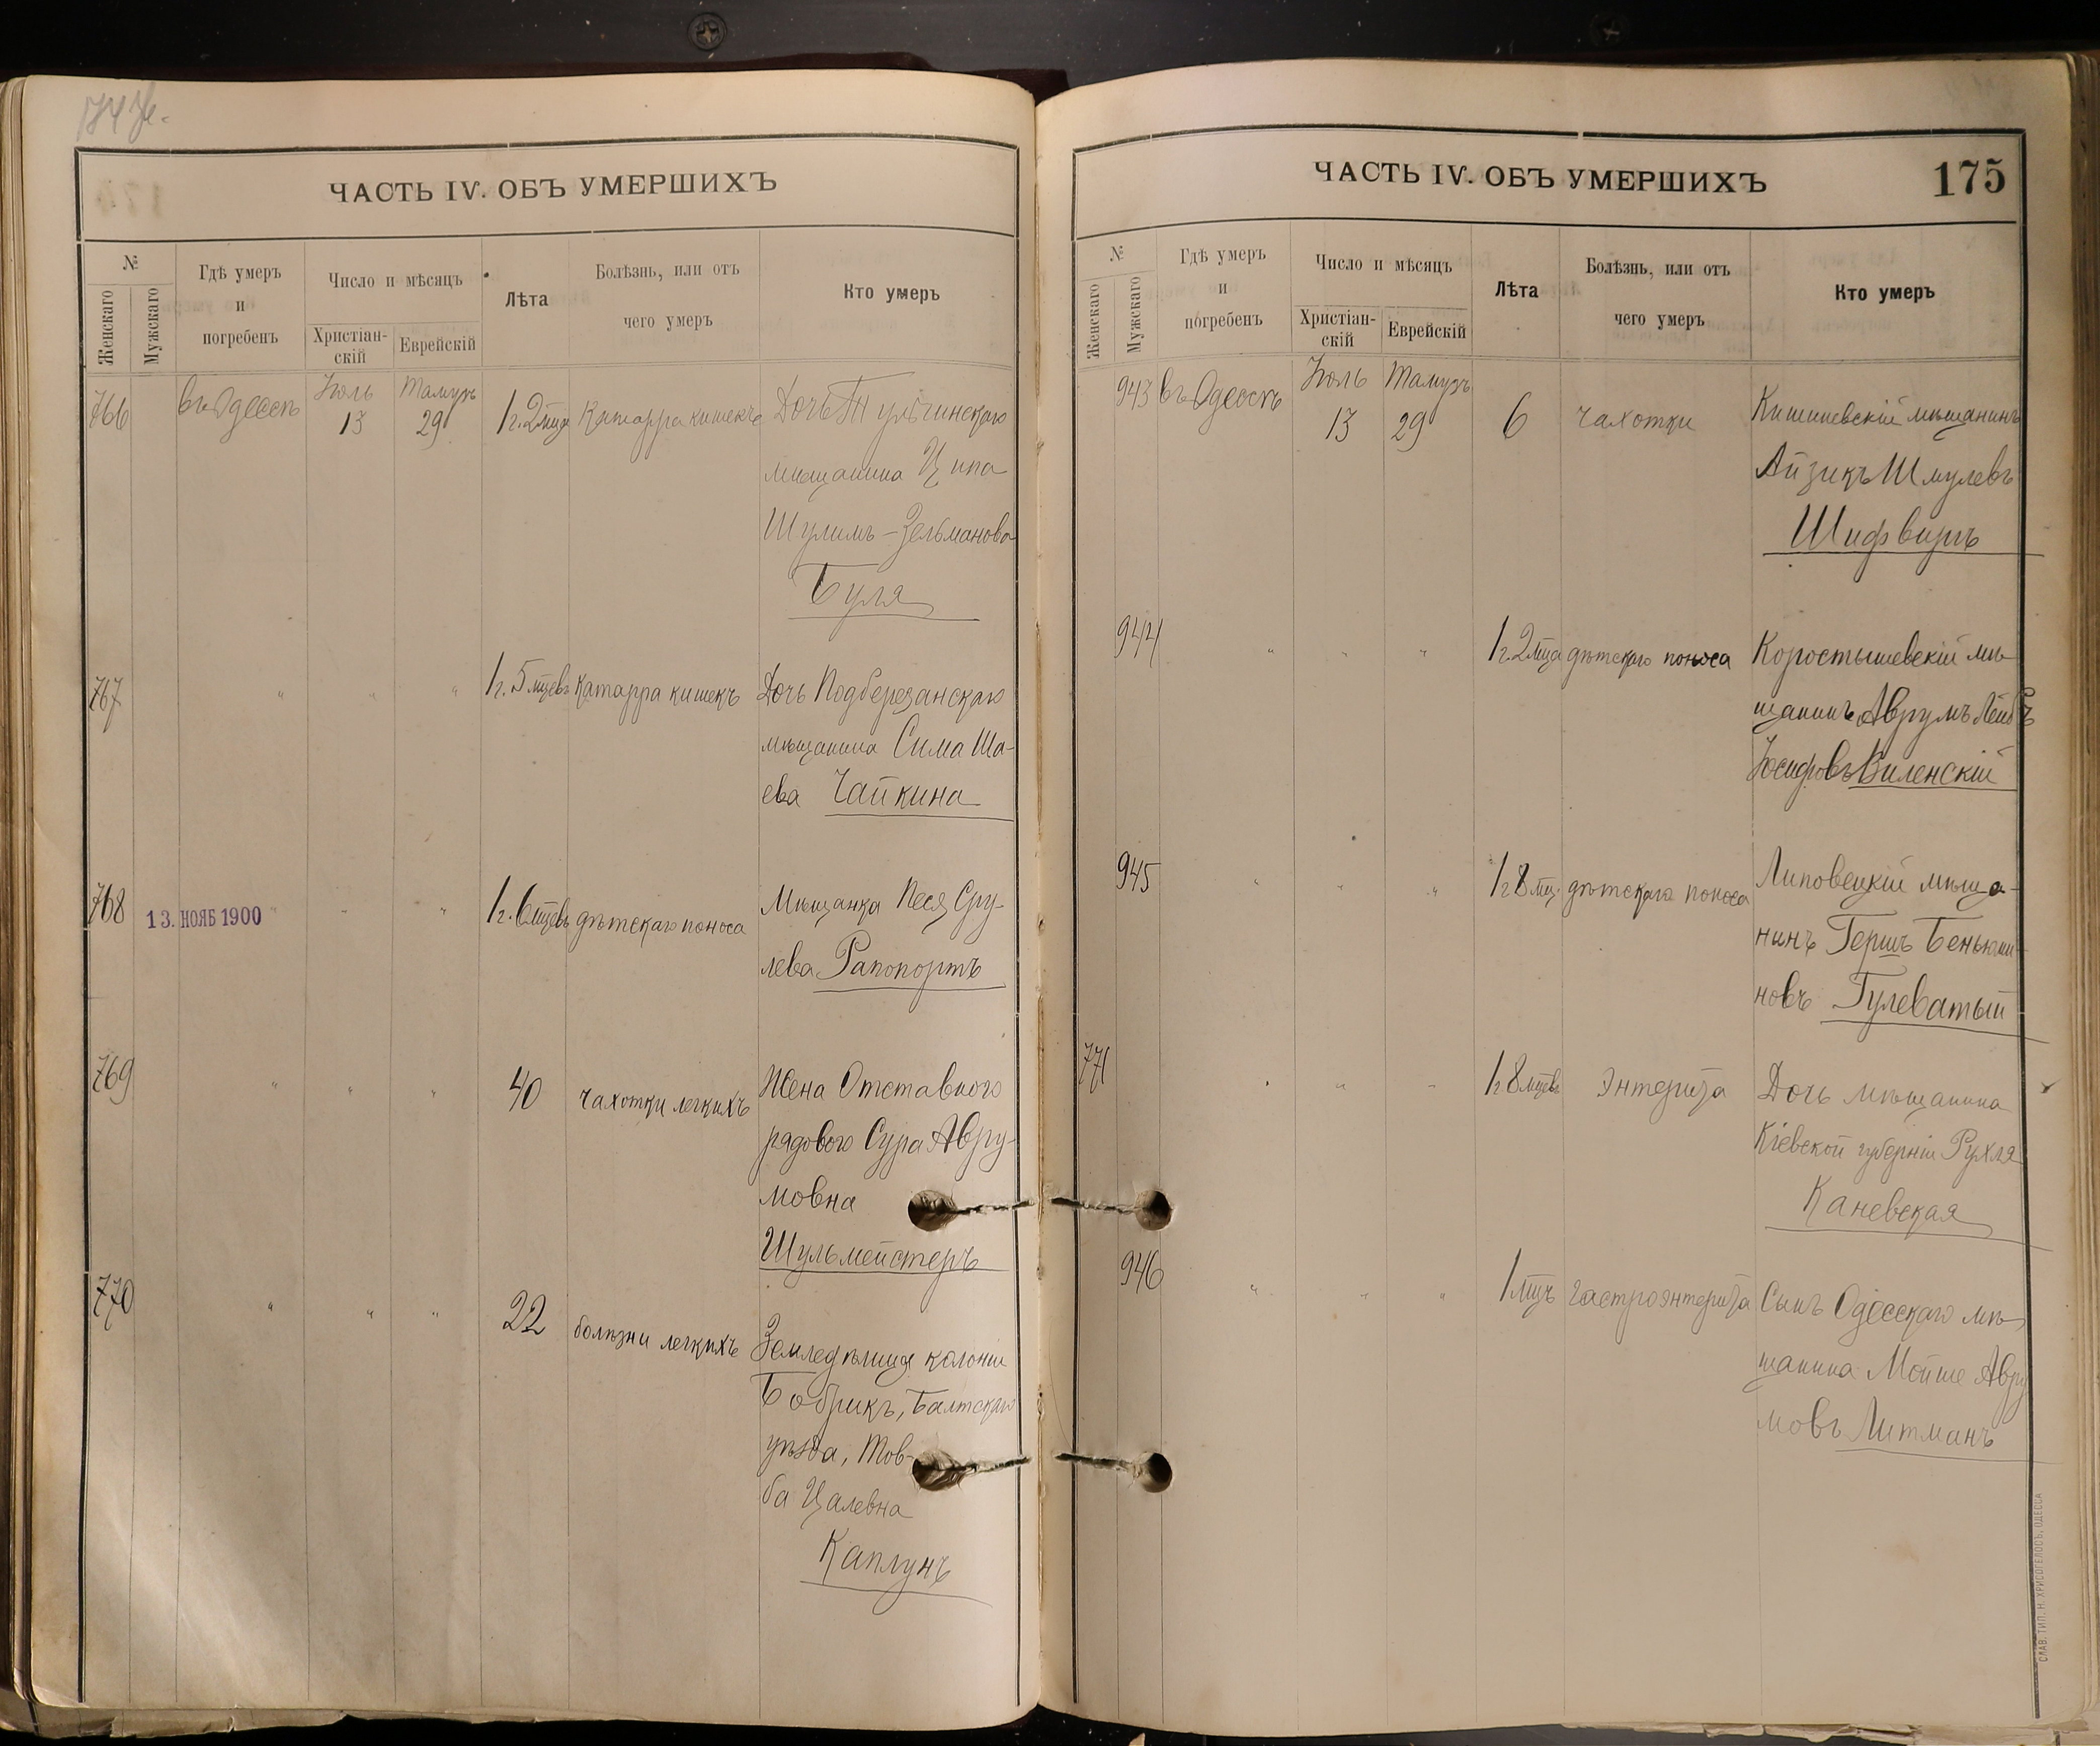 ЧАСТЬ IV. ОБЪ УМЕРШИХЪ
№
Женскаго
Мужскаго
Гдѣ умеръ
и
погребенъ
Число и мѣсяцъ
Христіан-
скій
Еврейскій
Лѣта
Болѣзнь, или отъ
чего умеръ
Кто умеръ
766 въ Одессѣ Іюль 13 Тамузъ 29 1 г. 2 мца Катарра кишекъ Дочь Тульчинскаго
мѣщанина Ципа
Шулимъ-Зельманова
Буля
767 " " " 1 г. 5 мцевъ катарра кишекъ Дочь Подберезанскаго
мѣщанина Сима Ша-
ева Чайкина
768 13. НОЯБ 1900 " " " 1 г. 6 мцевъ дѣтскаго поноса Мѣщанка Песя Сру-
лева Рапопортъ
769 " " " 40 чахотки легкихъ Жена Отставного
рядового Сура Авру-
мовна
Шульмейстеръ
770 " " " 22 болѣзни легкихъ Земледѣлица колоніи
Бобрикъ, Балтскаго
уѣзда, Тов-
ба Цалевна
Каплунъ
ЧАСТЬ IV. ОБЪ УМЕРШИХЪ 175
№
Женскаго
Мужскаго
Гдѣ умеръ
и
погребенъ
Число и мѣсяцъ
Христіан-
скій
Еврейскій
Лѣта
Болѣзнь, или отъ
чего умеръ
Кто умеръ
943 въ Одессѣ Іюль 13 Тамузъ 29 6 чахотки Кишиневскій мѣщанинъ
Айзикъ Шмулевъ
944 " " " 1 г. 2 мца дѣтскаго поноса Коростышевскій мѣ-
щанинъ Аврумъ Лейбъ
Іосифовъ Виленскій
945 " " 1 г 8 мц. дѣтскаго поноса Липовецкій мѣща-
нинъ Гершъ Беньями-
новъ Гулеватый
771 " " " 1 г 8 мцевъ Энтерита Дочь мѣщанина
Кіевской губерніи Рухля
Каневская
946 " " " 1 мцъ Гастроэнтерита Сынъ Одесскаго мѣ-
щанина Мойше Авру
мовъ Литманъ
СЛАВ. ТИП. Н. ХРИСОГЕЛОСЪ, ОДЕССА